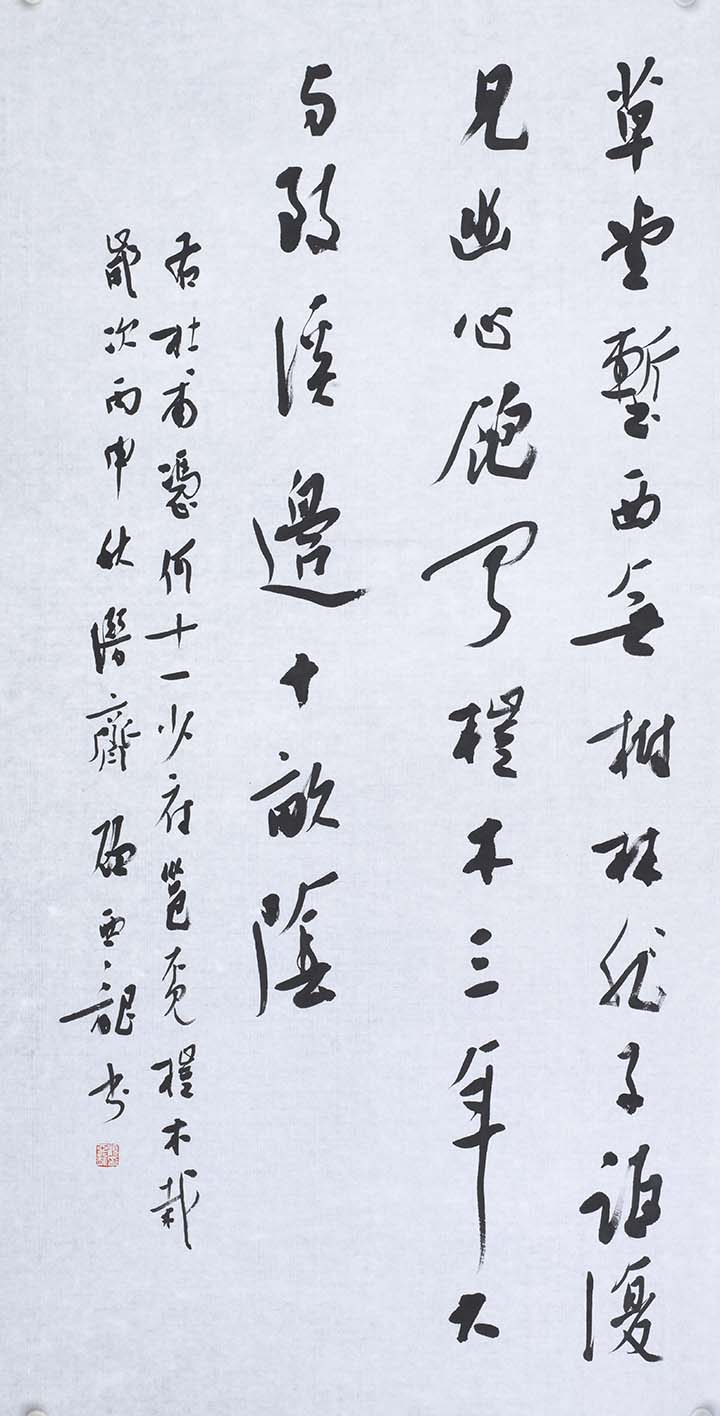 草堂塹西無樹林非子誰復
見幽心飽聞榿木三年大
与致溪邊十畝陰
右杜甫憑何十一少府邕覓榿木栽
歲次丙申秋潛齋龍书